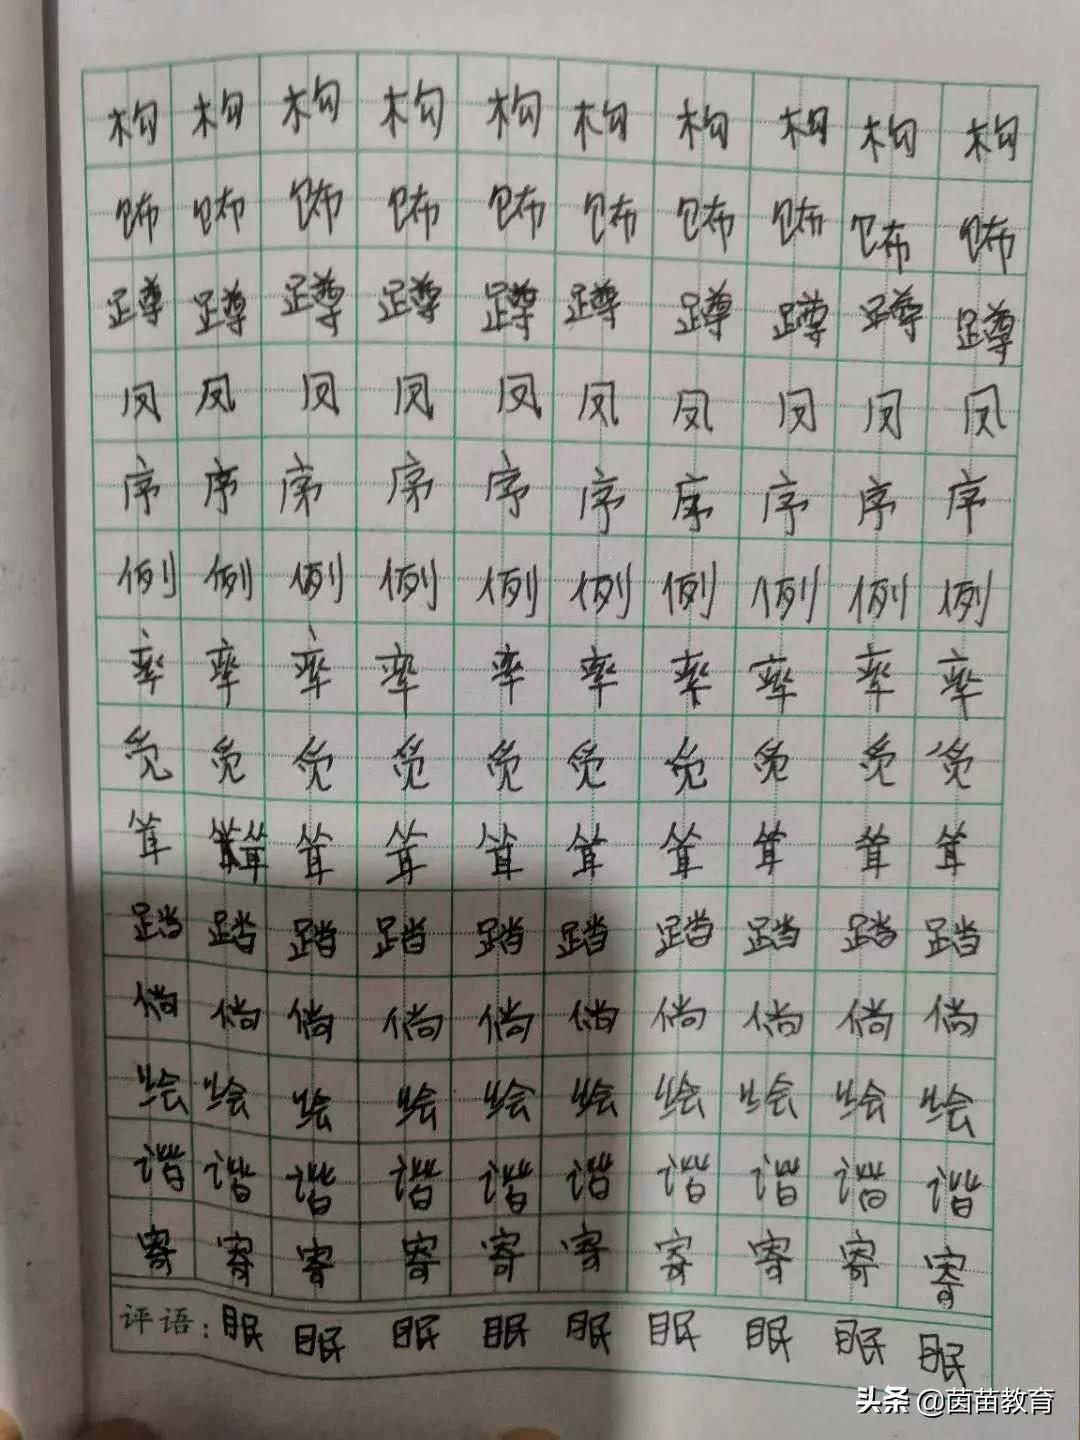 构构构构构构构构构构
饰饰饰饰饰饰饰饰饰饰
蹲蹲蹲蹲蹲蹲蹲蹲蹲蹲
凤凤凤凤凤凤凤凤凤凤
序序序序序序序序序序
例例例例例例例例例例
率率率率率率率率率率
觅觅觅觅觅觅觅觅觅觅
耸耸耸耸耸耸耸耸耸耸
踏踏踏踏踏踏踏踏踏踏
倘倘倘倘倘倘倘倘倘倘
绘绘绘绘绘绘绘绘绘绘
谐谐谐谐谐谐谐谐谐谐
寄寄寄寄寄寄寄寄寄寄
评语：眠眠眠眠眠眠眠眠眠
头条 @茵苗教育